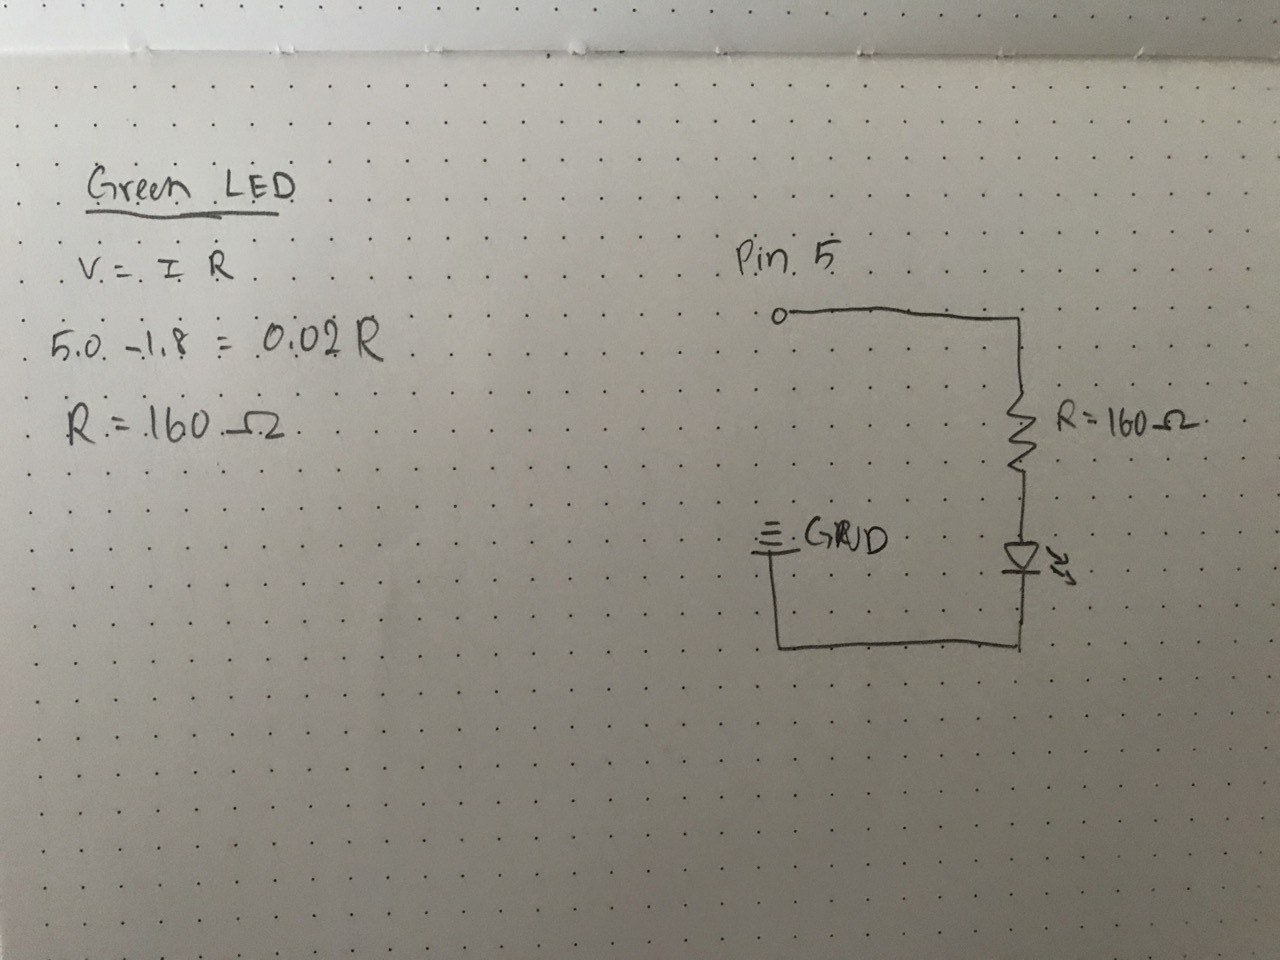 Green LED
V = I R
5.0 - 1.8 = 0.02 R
R = 160 Ω
Pin 5
R = 160 Ω
GRND